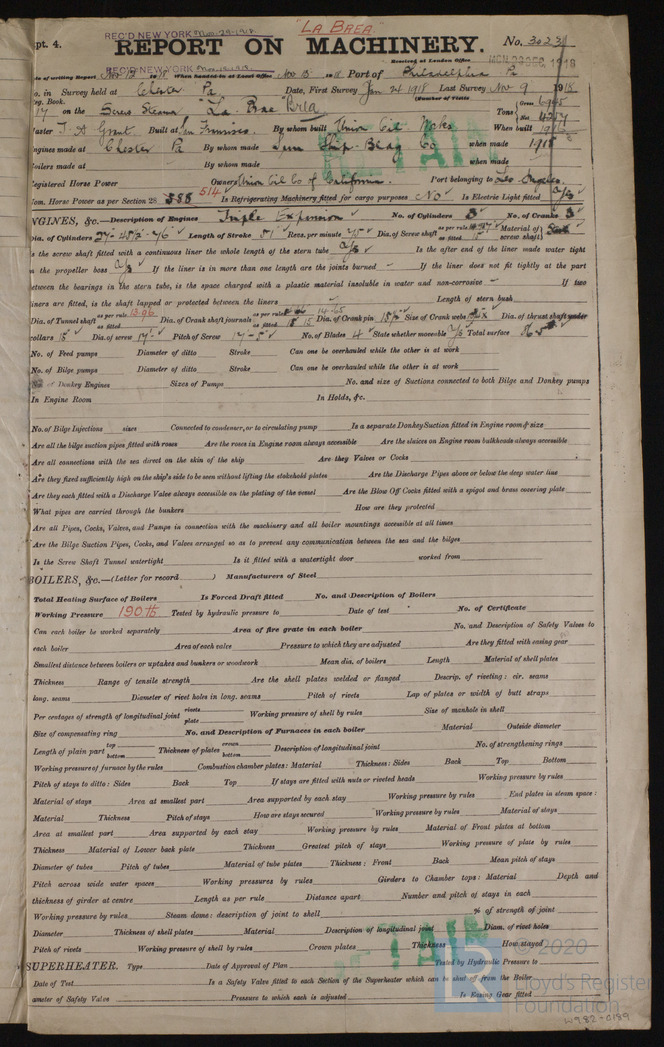 "LA BREA"
pt. 4. REC'D NEW YORK Nov. 29-1918
REPORT ON MACHINERY. No. 3023
REC'D NEW YORK
Received at London Office MON 23 DEC 1918
te of writing Report Nov 13 1918 When handed in at Local Office Nov 15 1918 Port of Philadelphia Pa
o. in Survey held at Chester Pa. Date, First Survey Jan 24 1918 Last Survey Nov 9 1918
eg. Book. (Number of Visits
on the Screw Steamer "La Brea" Tons Gross Net
aster Built at San Francisco By whom built Union Oil Works When built
ngines made at Chester Pa By whom made Sun Ship Bldg Co when made 1918
oilers made at By whom made when made
egistered Horse Power Owners Union Oil Co of California. Port belonging to Los Angeles
om. Horse Power as per Section 28 588 514 Is Refrigerating Machinery fitted for cargo purposes No Is Electric Light fitted Yes
NGINES, &c.—Description of Engines Triple Expansion No. of Cylinders 3 No. of Cranks 3
Dia. of Cylinders Length of Stroke 51 Revs. per minute Dia. of Screw shaft as per rule as fitted Material of screw shaft
s the screw shaft fitted with a continuous liner the whole length of the stern tube Yes Is the after end of the liner made water tight
n the propeller boss Yes If the liner is in more than one length are the joints burned — If the liner does not fit tightly at the part
between the bearings in the stern tube, is the space charged with a plastic material insoluble in water and non-corrosive — If two
liners are fitted, is the shaft lapped or protected between the liners — Length of stern bush
Dia. of Tunnel shaft as per rule 13.96 as fitted Dia. of Crank shaft journals as per rule 14.65 as fitted Dia. of Crank pin Size of Crank webs Dia. of thrust shaft under
collars 15" Dia. of screw 17'- Pitch of Screw 17-5 No. of Blades 4 State whether moveable Yes Total surface
No. of Feed pumps Diameter of ditto Stroke Can one be overhauled while the other is at work
No. of Bilge pumps Diameter of ditto Stroke Can one be overhauled while the other is at work
of Donkey Engines Sizes of Pumps No. and size of Suctions connected to both Bilge and Donkey pumps
In Engine Room In Holds, &c.
No. of Bilge Injections sizes Connected to condenser, or to circulating pump Is a separate Donkey Suction fitted in Engine room & size
Are all the bilge suction pipes fitted with roses Are the roses in Engine room always accessible Are the sluices on Engine room bulkheads always accessible
Are all connections with the sea direct on the skin of the ship Are they Valves or Cocks
Are they fixed sufficiently high on the ship's side to be seen without lifting the stokehold plates Are the Discharge Pipes above or below the deep water line
Are they each fitted with a Discharge Valve always accessible on the plating of the vessel Are the Blow Off Cocks fitted with a spigot and brass covering plate
What pipes are carried through the bunkers How are they protected
Are all Pipes, Cocks, Valves, and Pumps in connection with the machinery and all boiler mountings accessible at all times
Are the Bilge Suction Pipes, Cocks, and Valves arranged so as to prevent any communication between the sea and the bilges
Is the Screw Shaft Tunnel watertight Is it fitted with a watertight door worked from
BOILERS, &c.—(Letter for record ) Manufacturers of Steel
Total Heating Surface of Boilers Is Forced Draft fitted No. and Description of Boilers
Working Pressure 190 lb Tested by hydraulic pressure to Date of test No. of Certificate
Can each boiler be worked separately Area of fire grate in each boiler No. and Description of Safety Valves to
each boiler Area of each valve Pressure to which they are adjusted Are they fitted with easing gear
Smallest distance between boilers or uptakes and bunkers or woodwork Mean dia. of boilers Length Material of shell plates
Thickness Range of tensile strength Are the shell plates welded or flanged Descrip. of riveting: cir. seams
long. seams Diameter of rivet holes in long. seams Pitch of rivets Lap of plates or width of butt straps
Per centages of strength of longitudinal joint rivets plate Working pressure of shell by rules Size of manhole in shell
Size of compensating ring No. and Description of Furnaces in each boiler Material Outside diameter
Length of plain part top bottom Thickness of plates crown bottom Description of longitudinal joint No. of strengthening rings
Working pressure of furnace by the rules Combustion chamber plates: Material Thickness: Sides Back Top Bottom
Pitch of stays to ditto: Sides Back Top If stays are fitted with nuts or riveted heads Working pressure by rules
Material of stays Area at smallest part Area supported by each stay Working pressure by rules End plates in steam space:
Material Thickness Pitch of stays How are stays secured Working pressure by rules Material of stays
Area at smallest part Area supported by each stay Working pressure by rules Material of Front plates at bottom
Thickness Material of Lower back plate Thickness Greatest pitch of stays Working pressure of plate by rules
Diameter of tubes Pitch of tubes Material of tube plates Thickness: Front Back Mean pitch of stays
Pitch across wide water spaces Working pressures by rules Girders to Chamber tops: Material Depth and
thickness of girder at centre Length as per rule Distance apart Number and pitch of stays in each
Working pressure by rules Steam dome: description of joint to shell % of strength of joint
Diameter Thickness of shell plates Material Description of longitudinal joint Diam. of rivet holes
Pitch of rivets Working pressure of shell by rules Crown plates Thickness How stayed
SUPERHEATER. Type Date of Approval of Plan Tested by Hydraulic Pressure to
Date of Test Is a Safety Valve fitted to each Section of the Superheater which can be shut off from the Boiler
ameter of Safety Valve Pressure to which each is adjusted Is Easing Gear fitted
© 2020
Lloyd's Register
Foundation
W982-0189